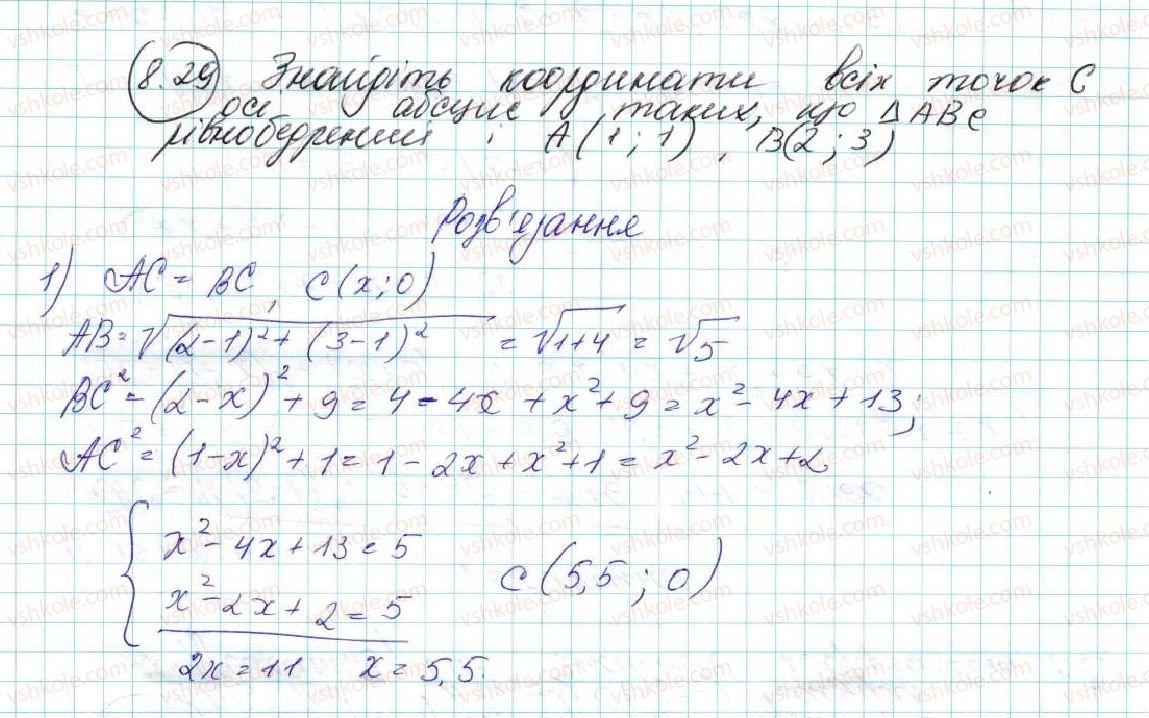 8.29 Знайдіть координати всіх точок С
осі абсцис таких, що ΔABC
рівнобедрений і A(1;1), B(2;3)
Розв'язання
1) AC = BC, C(x;0)
AB = √(2-1)²+(3-1)² = √1+4 = √5
BC² = (2-x)² + 9 = 4 - 4x + x² + 9 = x² - 4x + 13;
AC² = (1-x)² + 1 = 1 - 2x + x² + 1 = x² - 2x + 2
{ x² - 4x + 13 = 5
x² - 2x + 2 = 5
C(5,5; 0)
2x = 11 x = 5,5.